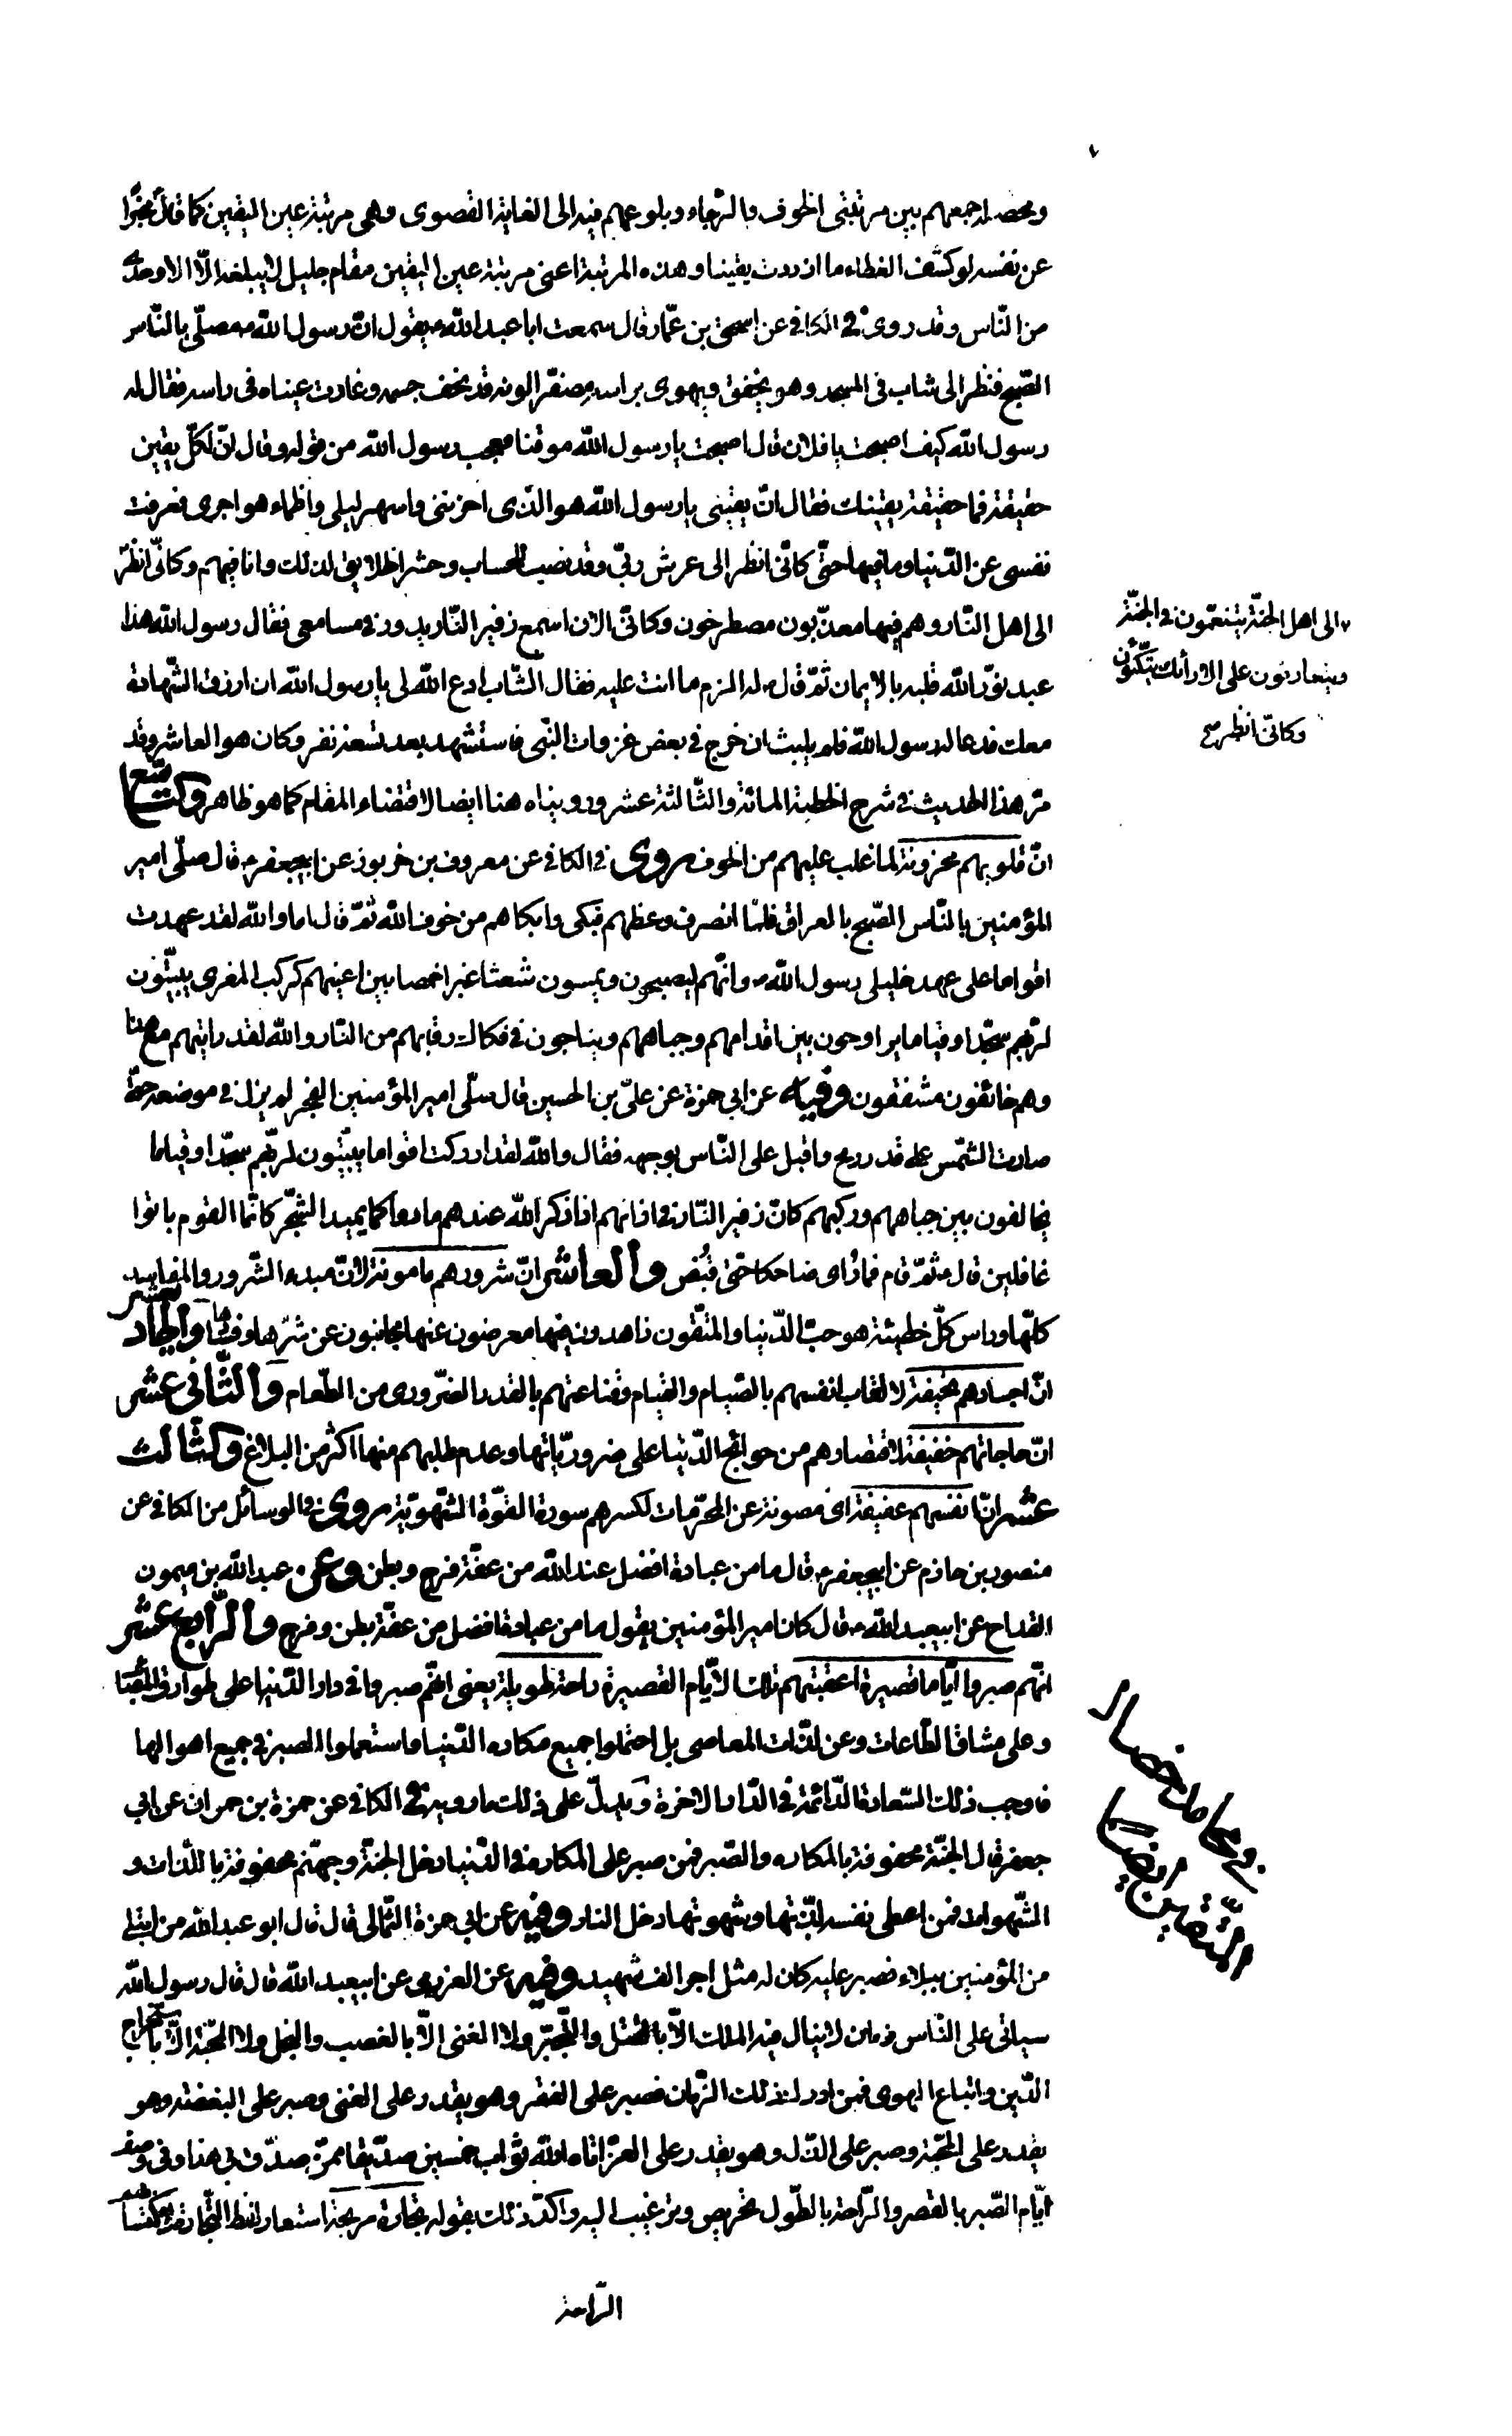 ومحصله جمعهم بين مرتبتى الخوف والرجاء وبلوغهم فيه الى الغاية القصوى وهى مرتبة عين اليقين كما قال مخبرا
عن نفسه لو كشف الغطاء ما ازددت يقينا وهذه المرتبة اعنى مرتبة عين اليقين مقام جليل لا يبلغه الّا الاوحدى
من النّاس وقد روى فى الكافى عن اسحق بن عمّار قال سمعت ابا عبد اللّه يقول انّ رسول اللّه صلّى بالنّاس
الصّبح فنظر الى شاب فى المسجد وهو يخفق ويهوى براسه مصفرّا لونه قد نحف جسمه وغارت عيناه فى راسه فقال له
رسول اللّه كيف اصبحت يا فلان قال اصبحت يا رسول اللّه موقنا فعجب رسول اللّه من قوله وقال انّ لكلّ يقين
حقيقة فما حقيقة يقينك فقال انّ يقينى يا رسول اللّه هو الّذى احزننى واسهر ليلى واظماء هواجرى فعزفت
نفسى عن الدّنيا وما فيها حتّى كانّى انظر الى عرش ربّى وقد نصب للحساب وحشر الخلايق لذلك وانا فيهم وكانّى انظر
الى اهل النّار وهم فيها معذّبون مصطرخون وكانّى الان اسمع زفير النّار يدور فى مسامعى فقال رسول اللّه هذا
عبد نوّر اللّه قلبه بالايمان ثمّ قال له الزم ما انت عليه فقال الشّاب ادع اللّه لى يا رسول اللّه ان ارزق الشّهادة
معك فدعا له رسول اللّه فلم يلبث ان خرج فى بعض غزوات النّبى فاستشهد بعد تسعة نفر وكان هو العاشر وقد
مرّ هذا الحديث فى شرح الخطبة المائة والثّالثة عشر ورويناه هنا ايضا لاقتضاء المقام كما هو ظاهر والتّاسع
انّ قلوبهم محزونة لما غلب عليهم من الخوف روى فى الكافى عن معروف بن خربوذ عن ابيجعفر قال صلّى امير
المؤمنين بالنّاس الصّبح بالعراق فلمّا انصرف وعظهم فبكى وابكاهم من خوف اللّه ثمّ قال اما واللّه لقد عهدت
اقواما على عهد خليلى رسول اللّه وانّهم ليصبحون ويمسون شعثا غبرا خمصا بين اعينهم كركب المعزى يبيتون
لربّهم سجّدا وقياما يراوحون بين اقدامهم وجباههم ويناجون فى فكاك رقابهم من النّار واللّه لقد رايتهم مع هذا
وهم خائفون مشفقون وفيه عن ابى حمزة عن علىّ بن الحسين قال صلّى امير المؤمنين الفجر لم يزل فى موضعه حتّى
صارت الشّمس على قدر رمح واقبل على النّاس بوجهه فقال واللّه لقد ادركت اقواما يبيتون لربّهم سجّدا وقياما
يخالفون بين جباههم وركبهم كانّ زفير النّار فى اذانهم اذا ذكر اللّه عندهم مادوا كما يميد الشّجر كانّما القوم باتوا
غافلين قال ثمّ قام فما رُاى ضاحكا حتّى قُبض والعاشر انّ شرورهم مامونة لانّ مبدء الشّرور والمفاسد
كلّها وراس كلّ خطيئة هو حبّ الدّنيا والمتّقون زاهدون فيها معرضون عنها مجانبون عن شرّها وفسادها والحاديعشر
انّ اجسادهم نحيفة لاتعاب انفسهم بالصّيام والقيام وقناعتهم بالقدر الضّرورى من الطّعام والثّانى عشر
انّ حاجاتهم خفيفة لاقتصارهم من حوائج الدّنيا على ضروريّاتها وعدم طلبهم منها اكثر من البلاغ والثّالث
عشر انّ انفسهم عفيفة اى مصونة عن المحرّمات لكسرهم سورة القوّة الشّهويّة روى فى الوسائل من الكافى عن
منصور بن حازم عن ابيجعفر قال ما من عبادة افضل عند اللّه من عفّة فرج وبطن وعن عبد اللّه بن ميمون
القداح عن ابيعبد اللّه قال كان امير المؤمنين يقول ما من عبادة افضل من عفّة بطن وفرج والرّابع عشر
انّهم صبروا ايّاما قصيرة اعقبتهم تلك الايّام القصيرة راحة طويلة يعنى انّهم صبروا فى دار الدّنيا على طوارق المصائب
وعلى مشاق الطّاعات وعن لذّات المعاصى بل احتملوا جميع مكاره الدّنيا واستعملوا الصبر فى جميع اهوالها
فاوجب ذلك السّعادة الدّائمة فى الدّار الاخرة ويدلّ على ذلك ما رويه فى الكافى عن حمزة بن حمران عن ابى
جعفر قال الجنّة محفوفة بالمكاره والصّبر فمن صبر على المكاره فى الدّنيا دخل الجنّة وجهنّم محفوفة باللّذات و
الشّهوات فمن اعطى نفسه لذّتها وشهوتها دخل النار وفيه عن ابى حمزة الثّمالى قال قال ابو عبد اللّه من ابتلى
من المؤمنين ببلاء فصبر عليه كان له مثل اجر الف شهيد وفيه عن العزرمى عن ابيعبد اللّه قال قال رسول اللّه
سياتى على النّاس زمان لا ينال فيه الملك الّا بالقتل والتّجبّر ولا الغنى الّا بالغصب والبخل ولا المحبّة الّا باستخراج
الدّين واتباع الهوى فمن ادرك ذلك الزّمان فصبر على الفقر وهو يقدر على الغنى وصبر على البغضة وهو
يقدر على المحبّة وصبر على الذّل وهو يقدر على العزّ اتاه اللّه ثواب خمسين صدّيقا ممّن صدّق بى هذا وفى وصف
ايّام الصّبر بالقصر والرّاحة بالطّول تحريص وترغيب اليه واكّد ذلك بقوله تجارة مربحة استعار لفظ التّجارة
الرّاحة
الى اهل الجنّة يتنعّمون فى الجنّة
ويتعارفون على الارائك متّكئون
وكانّى انظر صح
المتّقين ايضا